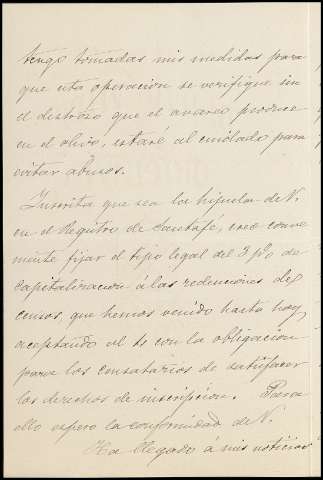 tengo tomadas mis medidas para
que esta operacion se verifique sin
el destrozo que el avareo produce
en el olivo, estaré al cuidado para
evitar abusos.
Inscrita que sea la hijuela de V.
en el Registro de Santafé, creo conve
niente fijar el tipo legal del 3 p% de
capitalizacion á las redenciones de
censos, que hemos venido hasta hoy
aceptando al con la obligacion
para los censatarios de satisfacer
los derechos de inscripcion. Para
ello espero la conformidad de V.
Ha llegado á mis noticias